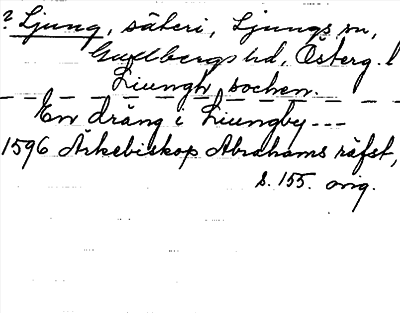 ? Ljung, säteri, Ljungs sn,
Gullbergs hd, Österg. l
Liungh sochen.
En dräng i Liungby ---
1596 Ärkebiskop Abrahams räfst,
s. 155. orig.